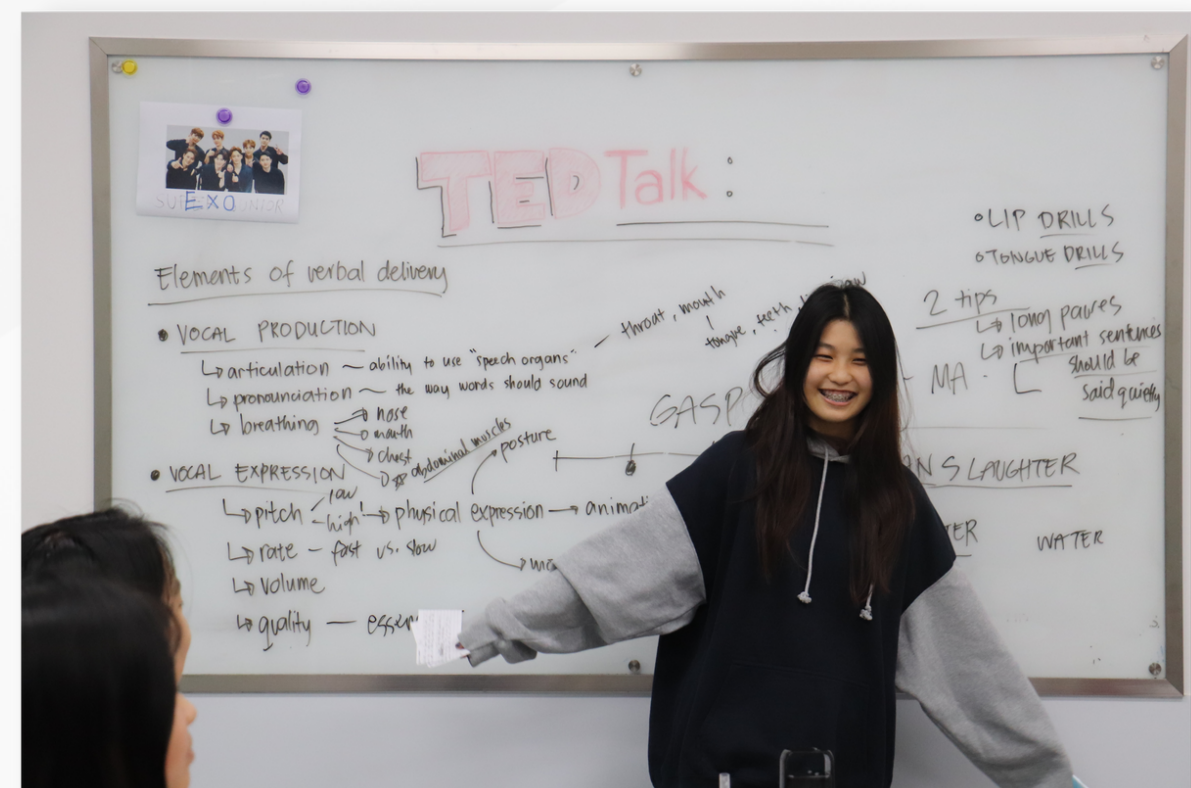 SUPER JUNIOR
EXO
TED Talk :
Elements of verbal delivery
• VOCAL PRODUCTION
↳ articulation ~ ability to use "speech organs" — throat, mouth
tongue, teeth, jaw
↳ pronounciation ~ the way words should sound
↳ breathing → nose
→ mouth
→ chest
→ abdominal muscles
• VOCAL EXPRESSION
↳ pitch - low
- high → physical expression → animati
posture
↳ rate - fast vs. slow
↳ volume
↳ quality — essen
GASP
• LIP DRILLS
• TONGUE DRILLS
2 tips
↳ long pauses
↳ important sentences
should be
said quietly
MA
NSLAUGHTER
TER
WATER